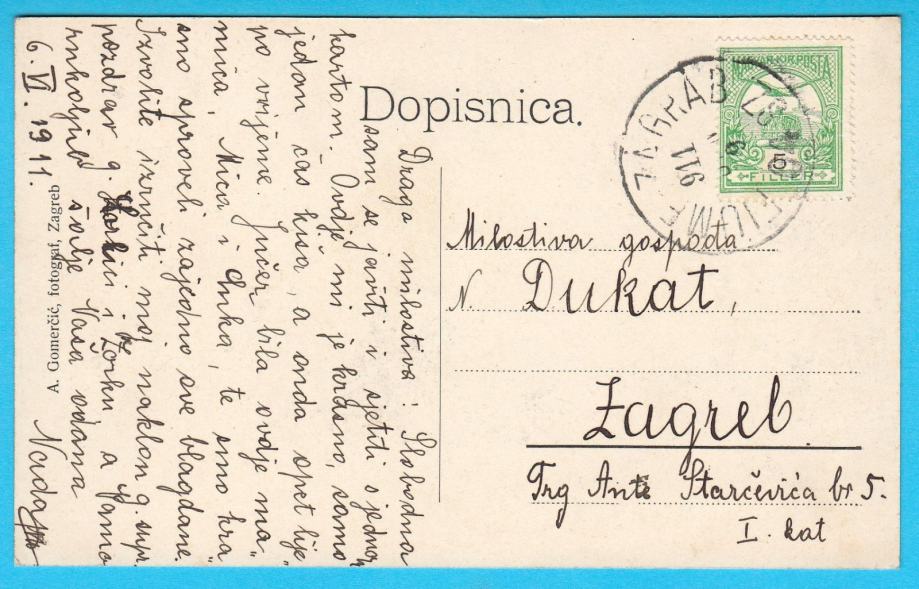 Dopisnica.
MAGYAR KIR. POSTA
5
FILLER
ZÁGRÁB
FIUME
911
Milostiva gospođa
N. Dukat,
Zagreb
Trg Ante Starčevića br 5.
I. kat
Draga milostiva! Slobodna
sam se javiti i sjetiti s jednom
kartom. Ovdje mi je krasno, samo
jedan čas kiša, a onda opet lije"
po vrijeme. Jučer bila ovdje ma"
mica, Mica i Anka, te smo kra"
sno sproveli zajedno sve blagdane.
Izvolite izručiti moj naklon g. supr.
pozdrav g. i Zorku a Vama
rukoljub šalje Vaša odana
6. VI. 1911. Nada
A. Gomerčić, fotograf, Zagreb